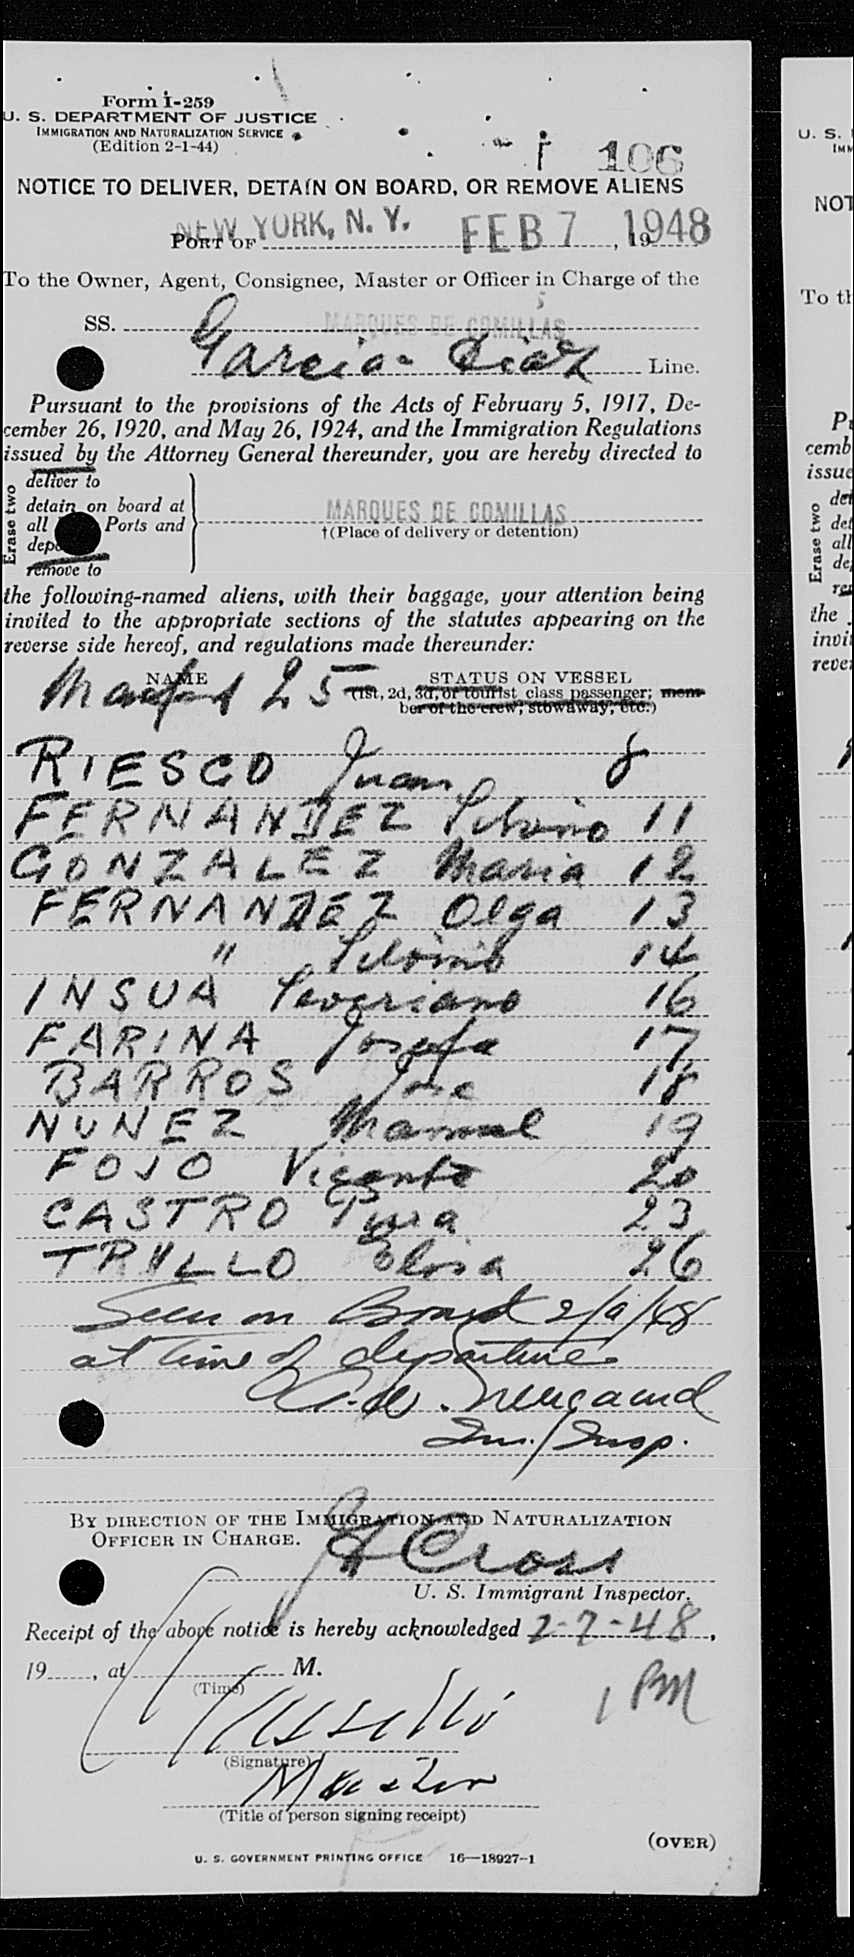 Form I-259
U. S. DEPARTMENT OF JUSTICE
IMMIGRATION AND NATURALIZATION SERVICE
(Edition 2-1-44)
106
NOTICE TO DELIVER, DETAIN ON BOARD, OR REMOVE ALIENS
PORT OF NEW YORK, N. Y. FEB 7, 1948
To the Owner, Agent, Consignee, Master or Officer in Charge of the
SS. MARQUES DE COMILLAS
Garcia-Diaz Line.
Pursuant to the provisions of the Acts of February 5, 1917, De-
cember 26, 1920, and May 26, 1924, and the Immigration Regulations
issued by the Attorney General thereunder, you are hereby directed to
Erase two
deliver to
detain on board at
all Ports and
remove to
MARQUES DE COMILLAS
†(Place of delivery or detention)
the following-named aliens, with their baggage, your attention being
invited to the appropriate sections of the statutes appearing on the
reverse side hereof, and regulations made thereunder:
NAME STATUS ON VESSEL
25 (1st, 2d, 3d, or tourist class passenger; mem-
ber of the crew; stowaway; etc.)
RIESCO Juan 8
FERNANDEZ Silvino 11
GONZALEZ Maria 12
FERNANDEZ Olga 13
" Silvino 14
INSUA Severiano 16
FARINA Josefa 17
BARROS Jose 18
NUNEZ Manuel 19
FOJO Vicente 20
CASTRO Pura 23
TRILLO Elisa 26
Seen on Board 2/9/48
at time of departure
Im. Insp.
BY DIRECTION OF THE IMMIGRATION AND NATURALIZATION
OFFICER IN CHARGE.
Cross
U. S. Immigrant Inspector.
Receipt of the above notice is hereby acknowledged 2-7-48,
19, at M. 1 PM
(Time)
(Signature)
Master
(Title of person signing receipt)
(OVER)
U. S. GOVERNMENT PRINTING OFFICE 16—18927-1